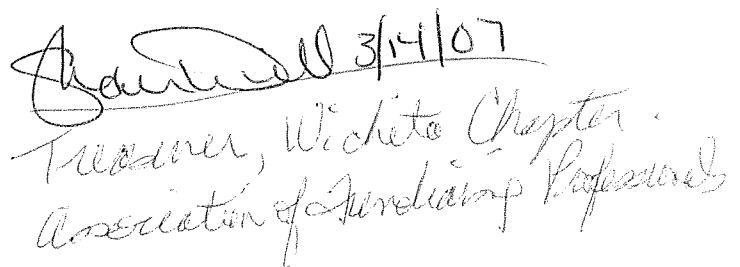 3/14/07
Treasurer, Wichita Chapter.
Association of Fundraising Professionals